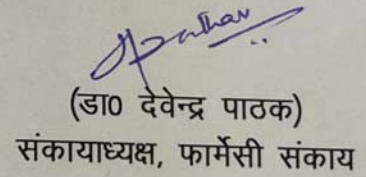 (डा0 देवेन्द्र पाठक)
संकायाध्यक्ष, फार्मेसी संकाय